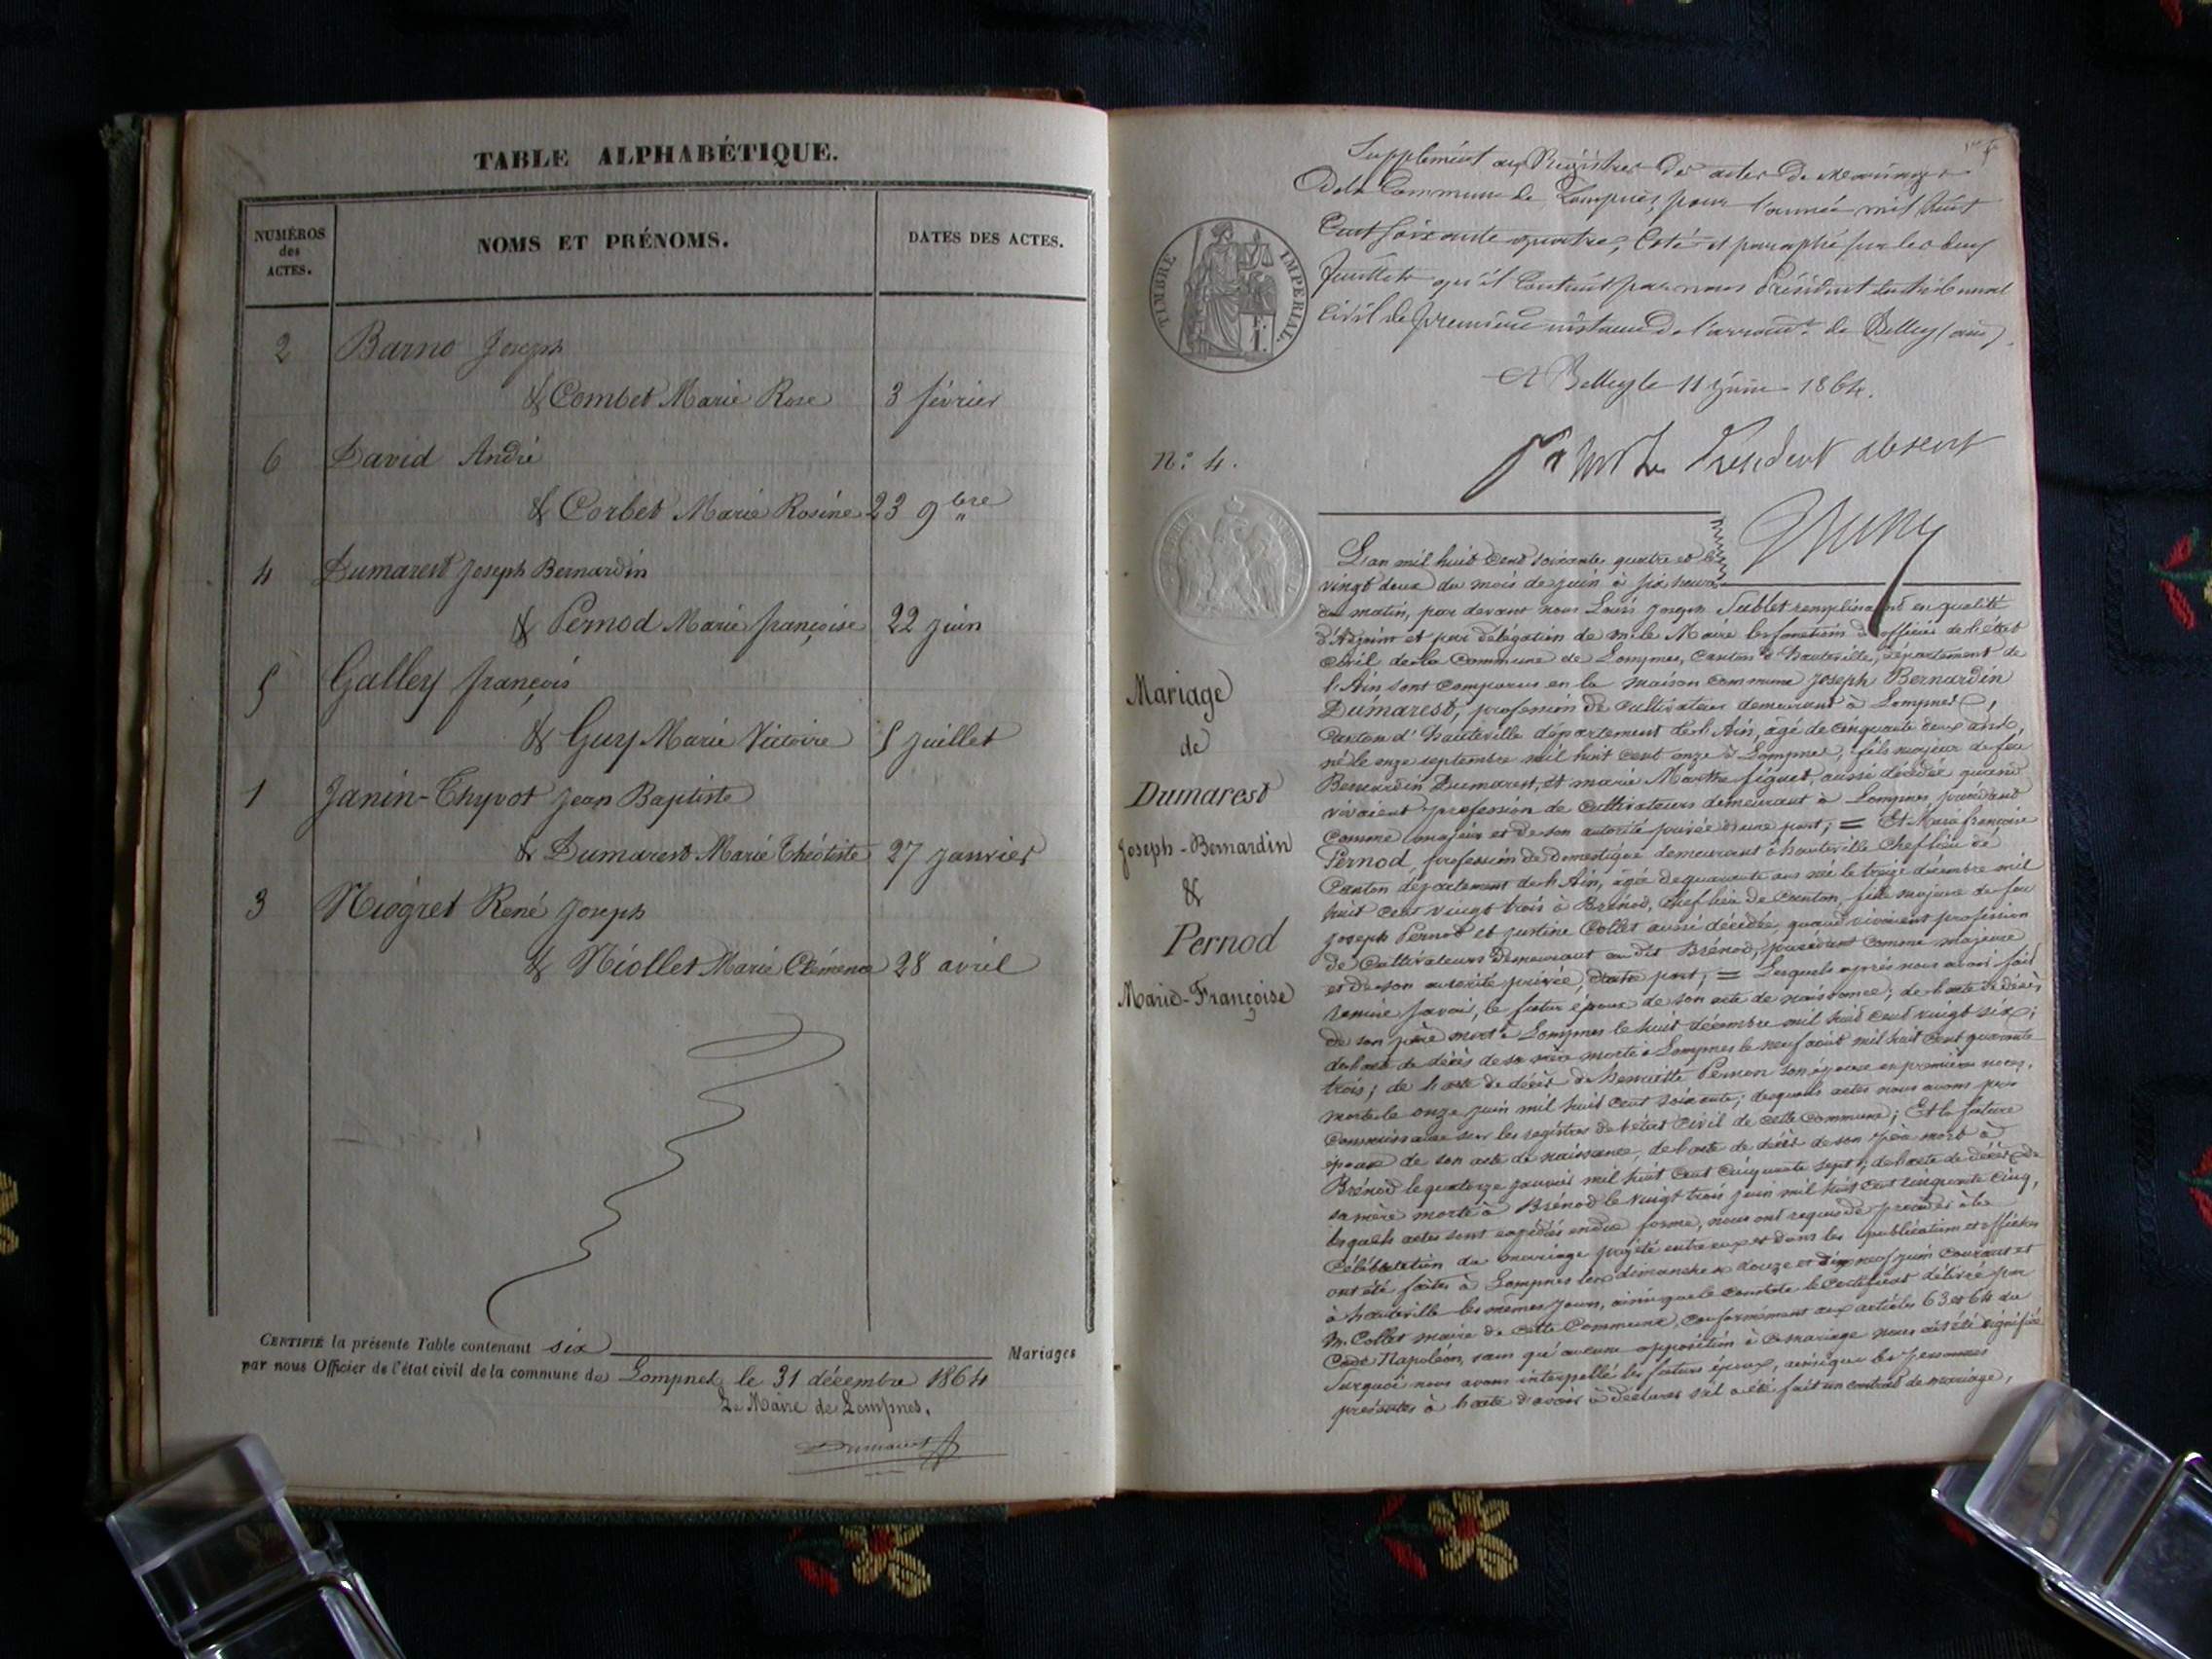 TABLE ALPHABÉTIQUE.
NUMÉROS des ACTES.
NOMS ET PRÉNOMS.
DATES DES ACTES.
2 Barno Joseph
& Combet Marie Rose 3 février
6 David André
& Corbet Marie Rosine 23 9bre
4 Dumarest Joseph Bernardin
& Pernod Marie françoise 22 juin
5 Galley françois
& Guy Marie Victoire 5 juillet
1 Janin-Thyvot Jean Baptiste
& Dumarest Marie Théotiste 27 janvier
3 Niogret René Joseph
& Niollet Marie Clémence 28 avril
CERTIFIÉ la présente Table contenant six Mariages
par nous Officier de l'état civil de la commune de Lompnes le 31 décembre 1864
Le Maire de Lompnes,
Dumarest
Supplément aux Registres des actes de mariages
De la Commune de Lompnes, pour l'année mil huit
Cent soixante quatre, Coté et paraphé sur les deux
feuillets qu'il Contient par nous Président du tribunal
Civil de première instance de l'arrondt. de Belley (ain).
A Belley le 11 juin 1864.
Président absent
TIMBRE IMPÉRIAL
1 F.
N° 4.
Mariage
de
Dumarest
Joseph-Bernardin
&
Pernod
Marie-Françoise
L'an mil huit cent soixante quatre et le
vingt deux du mois de juin à six heures
du matin, par devant nous Louis Joseph Sublet remplissant en qualité
d'Adjoint et par délégation de m. le Maire les fonctions d'officier de l'état
civil de la Commune de Lompnes, Canton d'hauteville, département de
l'Ain sont comparus en la maison commune Joseph Bernardin
Dumarest, profession de Cultivateur demeurant à Lompnes,
Canton d'hauteville département de l'Ain, âgé de cinquante deux ans,
né le onze septembre mil huit cent onze à Lompnes, fils majeur de feu
Bernardin Dumarest, et marie Marthe figuet, aussi décédée quand
vivaient profession de Cultivateurs demeurant à Lompnes, procédant
Comme majeur et de son autorité privée d'une part; = Et Marie françoise
Pernod, profession de Domestique demeurant à hauteville Chef lieu de
Canton département de l'Ain, âgée de quarante ans née le treize décembre mil
huit cent vingt trois à Brénod, Chef lieu de Canton, fille majeure de feu
Joseph Pernod et Justine Collet aussi décédée, quand vivaient profession
de Cultivateurs demeurant au dit Brénod, procédant comme majeure
et de son autorité privée, d'autre part; = Lesquels après nous avoir fait
remise savoir, le futur époux de son acte de naissance; de l'acte de décès
de son père mort à Lompnes le huit décembre mil huit cent vingt six;
de l'acte de décès de sa mère morte à Lompnes le neuf août mil huit cent quarante
trois; de l'acte de décès de henriette Pernon son épouse en premières noces,
morte le onze juin mil huit cent soixante; desquels actes nous avons pris
Connaissance sur les registres de l'état civil de cette Commune; Et la future
épouse de son acte de naissance, de l'acte de décès de son père mort à
Brénod le quatorze janvier mil huit cent cinquante sept; de l'acte de décès de
sa mère morte à Brénod le vingt trois juin mil huit cent cinquante cinq,
lesquels actes sont expédiés en due forme, nous ont requis de procéder à la
Célébration du mariage projeté entre eux et dont les publications et affiches
ont été faites à Lompnes les dimanches douze et dix neuf juin courant et
à hauteville les mêmes jours, ainsi que le constate le certificat délivré par
M. Collet maire de cette Commune, conformément aux articles 63 et 64 du
Code Napoléon, sans qu'aucune opposition à ce mariage nous ait été signifiée
Surquoi nous avons interpellé les futurs époux, ainsi que les personnes
présentes à l'acte d'avoir à déclarer s'il a été fait un contrat de mariage,